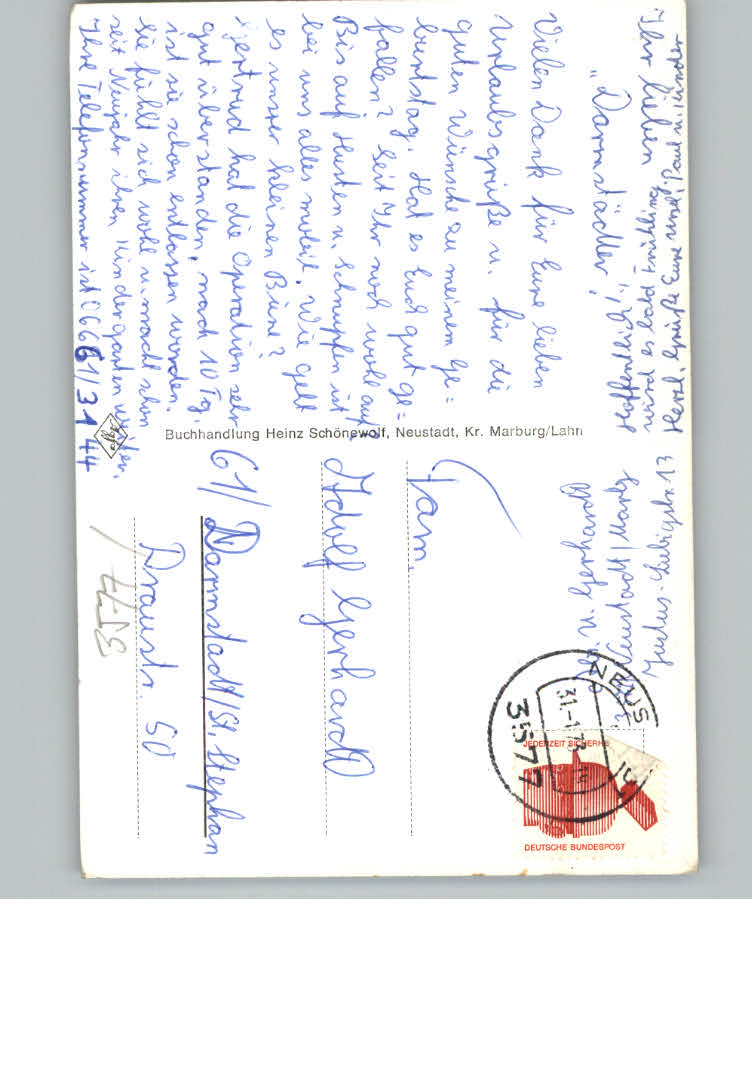 "Ihr lieben
"Darmstädter",
Vielen Dank für Eure lieben
Urlaubsgrüße u. für die
guten Wünsche zu meinem Ge=
burtstag. Hat es Euch gut ge=
fallen? Seit Ihr noch wohl auf?
Bis auf Husten u. Schnupfen ist
bei uns alles mobil. Wie geht
es unser kleinen Biene?
Gertrud hat die Operation sehr
gut überstanden, nach 10 Tg.
ist sie schon entlassen worden.
Sie fühlt sich wohl u. macht schon
seit Neujahr ihren Kindergarten weiter.
Ihre Telefonnummer ist 06661/3144
Hoffentlich
wird es bald Frühling
Herzl. Grüße Eure Paul u. Kinder
Buchhandlung Heinz Schönewolf, Neustadt, Kr. Marburg/Lahn
Neustadt/Marbg
Justus-Liebigstr. 13
NEUS
31.-1.73
3577
JEDERZEIT SICHERHE
DEUTSCHE BUNDESPOST
Fam.
Adolf Gerhardt
61/ Darmstadt/St. Stephan
Draustr. 50